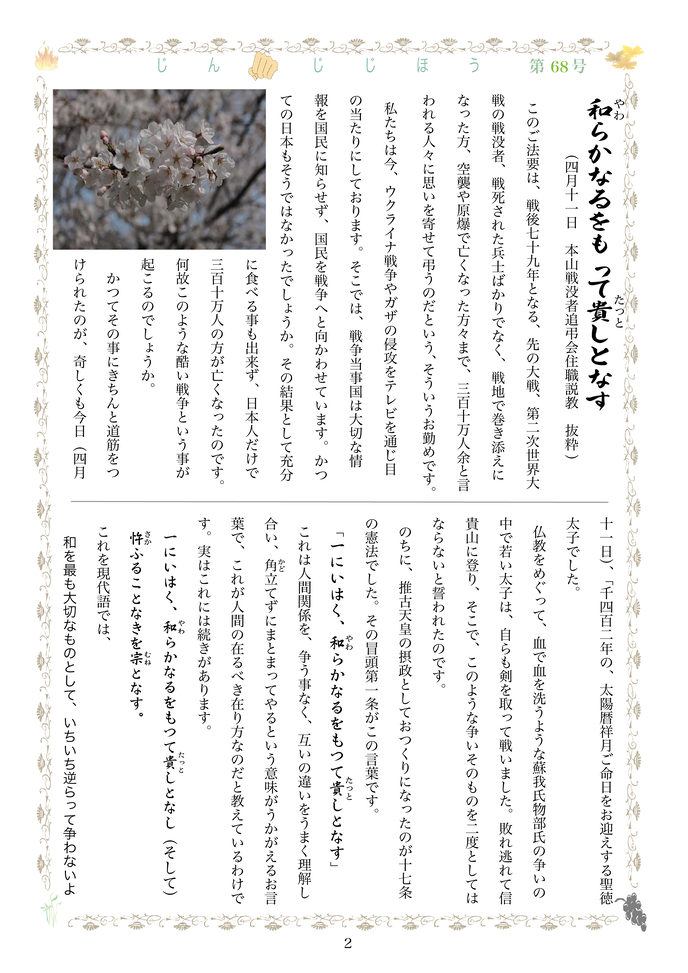 じんじじほう 第68号
和らかなるをもって貴しとなす
(四月十一日 本山戦没者追弔会住職説教 抜粋)
このご法要は、戦後七十九年となる、先の大戦、第二次世界大
戦の戦没者、戦死された兵士ばかりでなく、戦地で巻き添えに
なった方、空襲や原爆で亡くなった方々まで、三百十万人余と言
われる人々に思いを寄せて弔うのだという、そういうお勤めです。
私たちは今、ウクライナ戦争やガザの侵攻をテレビを通じ目
の当たりにしております。そこでは、戦争当事国は大切な情
報を国民に知らせず、国民を戦争へと向かわせています。かつ
ての日本もそうではなかったでしょうか。その結果として充分
に食べる事も出来ず、日本人だけで
三百十万人の方が亡くなったのです。
何故このような酷い戦争という事が
起こるのでしょうか。
かつてその事にきちんと道筋をつ
けられたのが、奇しくも今日(四月
十一日)、「千四百二年の、太陽暦祥月ご命日をお迎えする聖徳
太子でした。
仏教をめぐって、血で血を洗うような蘇我氏物部氏の争いの
中で若い太子は、自らも剣を取って戦いました。敗れ逃れて信
貴山に登り、そこで、このような争いそのものを二度としては
ならないと誓われたのです。
のちに、推古天皇の摂政としておつくりになったのが十七条
の憲法でした。その冒頭第一条がこの言葉です。
「一にいはく、和らかなるをもつて貴しとなす」
これは人間関係を、争う事なく、互いの違いをうまく理解し
合い、角立てずにまとまってやるという意味がうかがえるお言
葉で、これが人間の在るべき在り方なのだと教えているわけで
す。実はこれには続きがあります。
一にいはく、和らかなるをもつて貴しとなし(そして)
忤ふることなきを宗となす。
これを現代語では、
和を最も大切なものとして、いちいち逆らって争わないよ
2